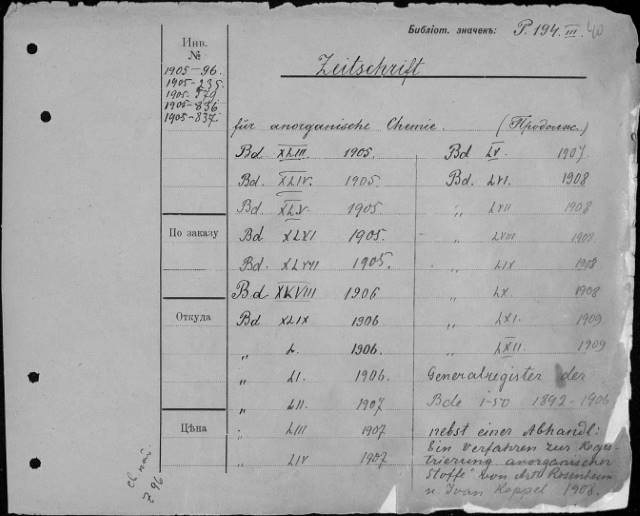 Библіот. значекъ: P. 194. III. 40
Инв.
№
1905-96.
1905-235
1905-579
1905-836
1905-837.
Zeitschrift
für anorganische Chemie. (Продолж.)
Bd XLIII. 1905. Bd LV. 1907
Bd. XLIV. 1905. Bd. LVI. 1908
Bd. XLV. 1905 „ LVII 1908
По заказу
Bd XLVI 1905. „ LVIII 1908
Bd. XLVII 1905. „ LIX 1908
Bd XLVIII 1906 „ LX. 1908
Откуда
Bd XLIX 1906 „ LXI. 1909
„ L. 1906. „ LXII. 1909
„ LI. 1906. Generalregister der
„ LII. 1907 Bde 1-50 1892-1906
Цѣна
„ LIII 1907 nebst einer Abhandl:
„ LIV 1907 Ein Verfahren zur Regis-
trierung anorganischer
Stoffe" von Art. Rosenheim
u. Ivan Koppel 1908.